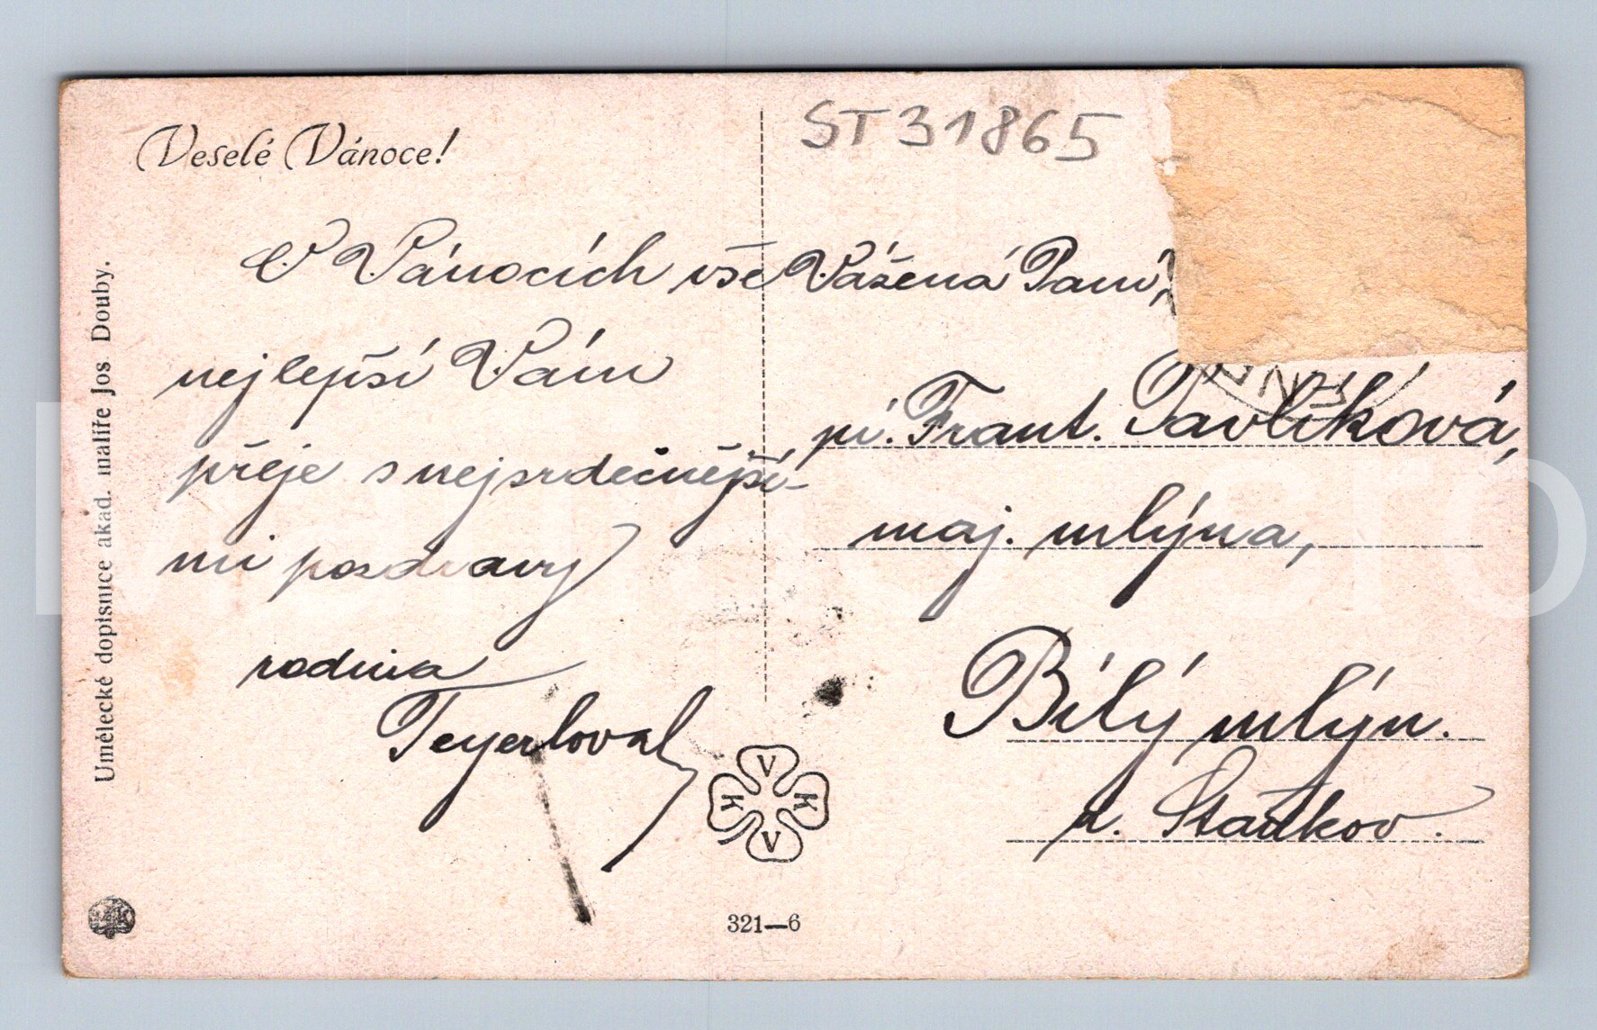 Veselé Vánoce!
ST31865
O Vánocích vše
nejlepší Vám
přeje s nejsrdečnější-
mi pozdravy
rodina
Teyerlova
Vážená Paní,
pí. Frant. Pavlíková,
maj. mlýna,
Bílý mlýn.
p. Staňkov.
Umělecké dopisnice akad. malíře Jos Douby.
V K K V
321—6